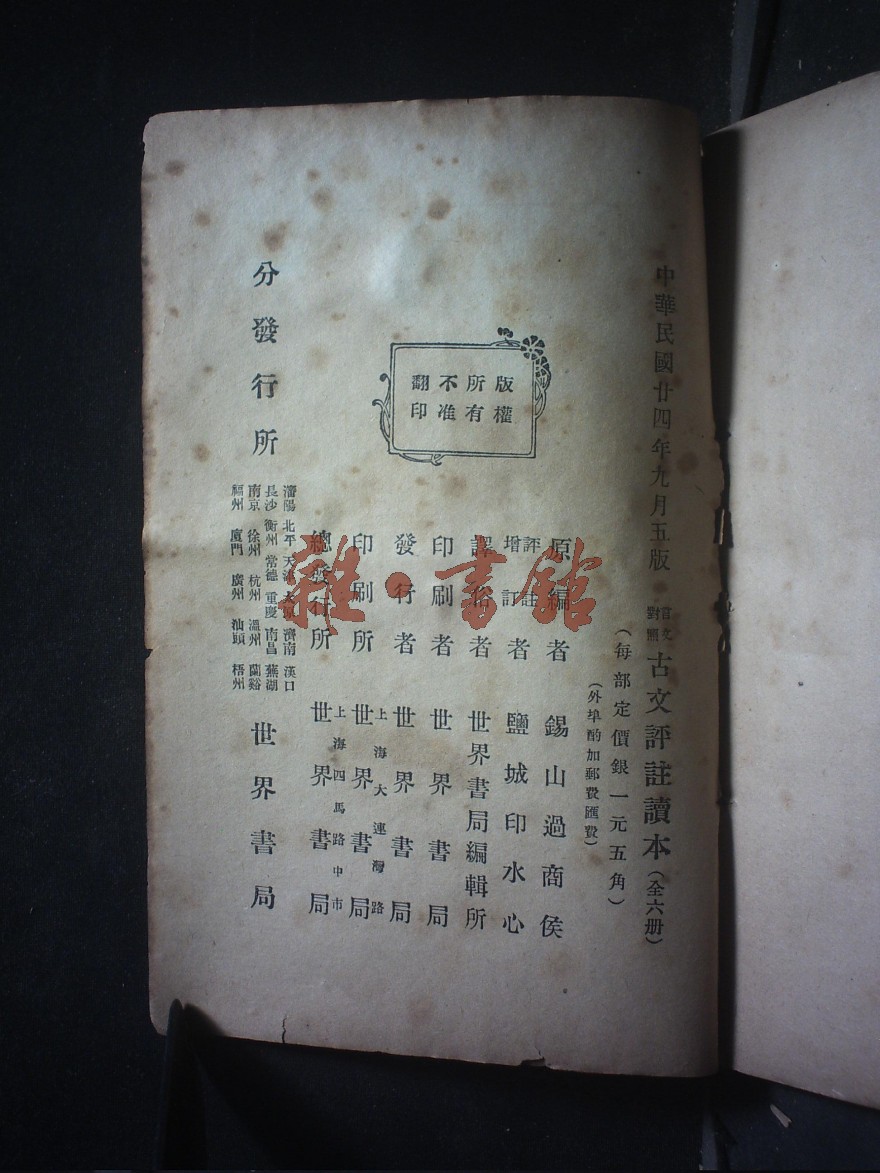 中華民國廿四年九月五版
言文對照 古文評註讀本(全六册)
(每部定價銀一元五角)
(外埠酌加郵費匯費)
原編者 錫山過商侯
評註增訂者 鹽城印水心
譯俗者 世界書局編輯所
印刷者 世界書局
發行者 世界書局
印刷所 上海大連灣路 世界書局
總發行所 上海四馬路中市 世界書局
版權所有不准翻印
分發行所
瀋陽 北平 天津 太原 濟南 漢口
長沙 衡州 常德 重慶 南昌 蕪湖
南京 徐州 杭州 溫州 蘭谿
福州 廈門 廣州 汕頭 梧州
世界書局
雜·書館